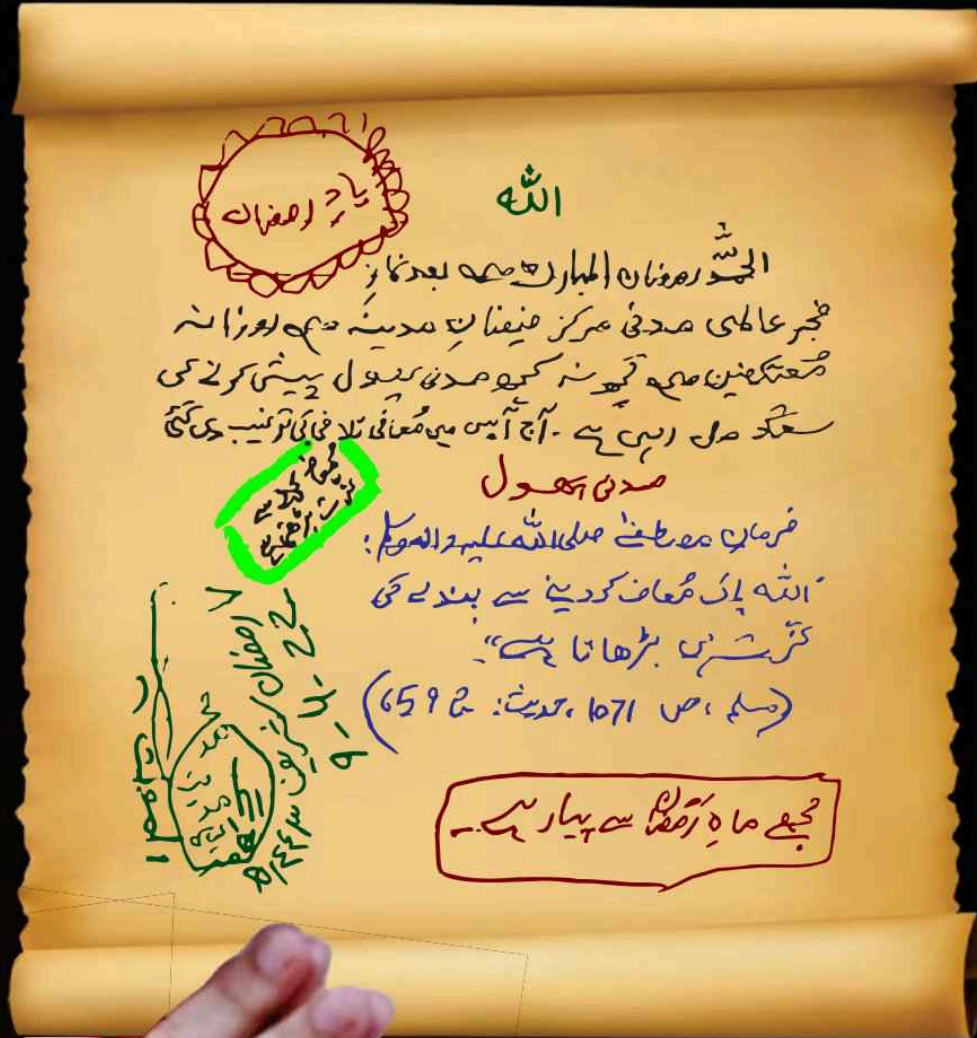 الله
یادِ رمضان
الحمدللہ رمضان المبارک میں بعد نمازِ
فجر عالمی مدنی مرکز فیضانِ مدینہ میں روزانہ
مُعتکفین میں کچھ نہ کچھ مدنی پھول پیش کرنے کی
سعادت مل رہی ہے۔ آج آپس میں مُعافی تلافی کی ترغیب دی گئی
مُعاف کرنے سے
عزت بڑھتی ہے
مدنی پھول
فرمانِ مصطفےٰ صلی اللہ علیہ والہ وسلم:
"اللہ پاک مُعاف کردینے سے بندے کی
عزّت ہی بڑھاتا ہے"۔
(مسلم، ص 1071، حدیث: 6592)
مجھے ماہِ رَمَضان سے پیار ہے۔
۷ رمضان شریف ۱۴۴۳ھ
۹-۴-۲۲